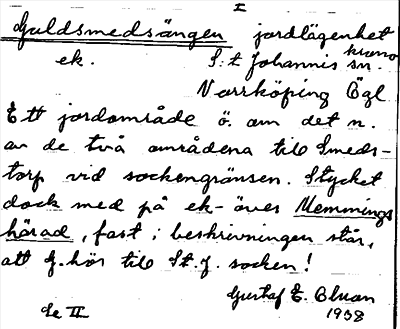 I
Guldsmedsängen jordlägenhet
krono
ek. S:t Johannis sn.
Norrköping Ögl
Ett jordområde ö. om det n.
av de två områdena till Smeds-
torp vid sockengränsen. Stycket
dock med på ek- över Memmings
härad, fast i beskrivningen står,
att G. hör till St. J. socken!
Gustaf E. Bluan
Se II 1938